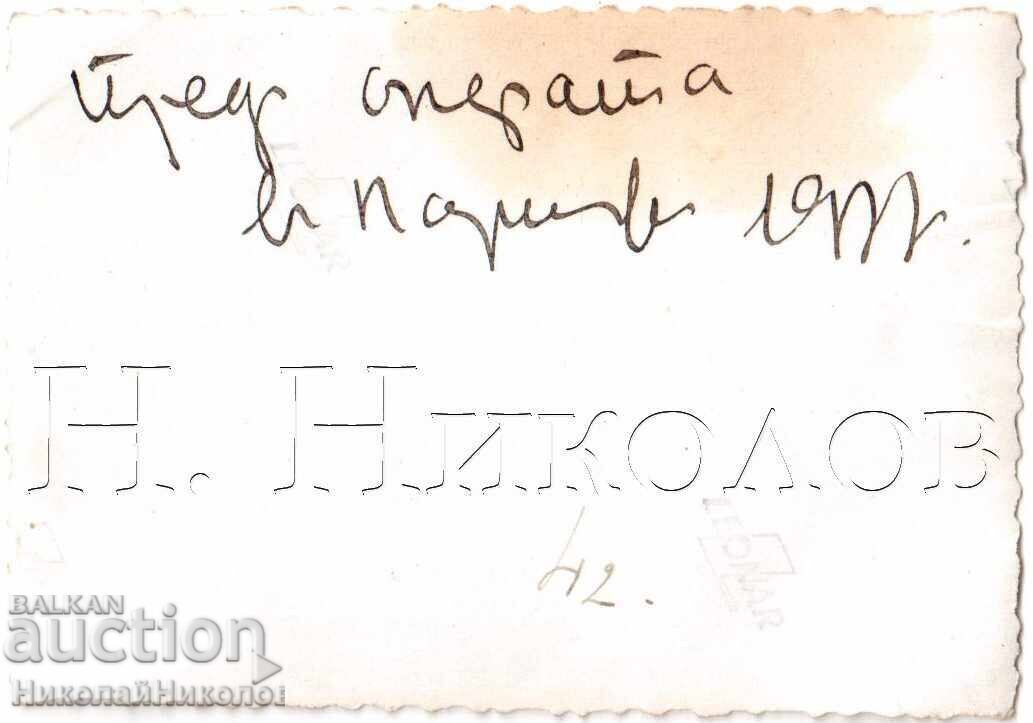 Пред операта
в Париж 19
Н. Николов
LEONAR
42.
BALKAN
auction
НиколайНиколов